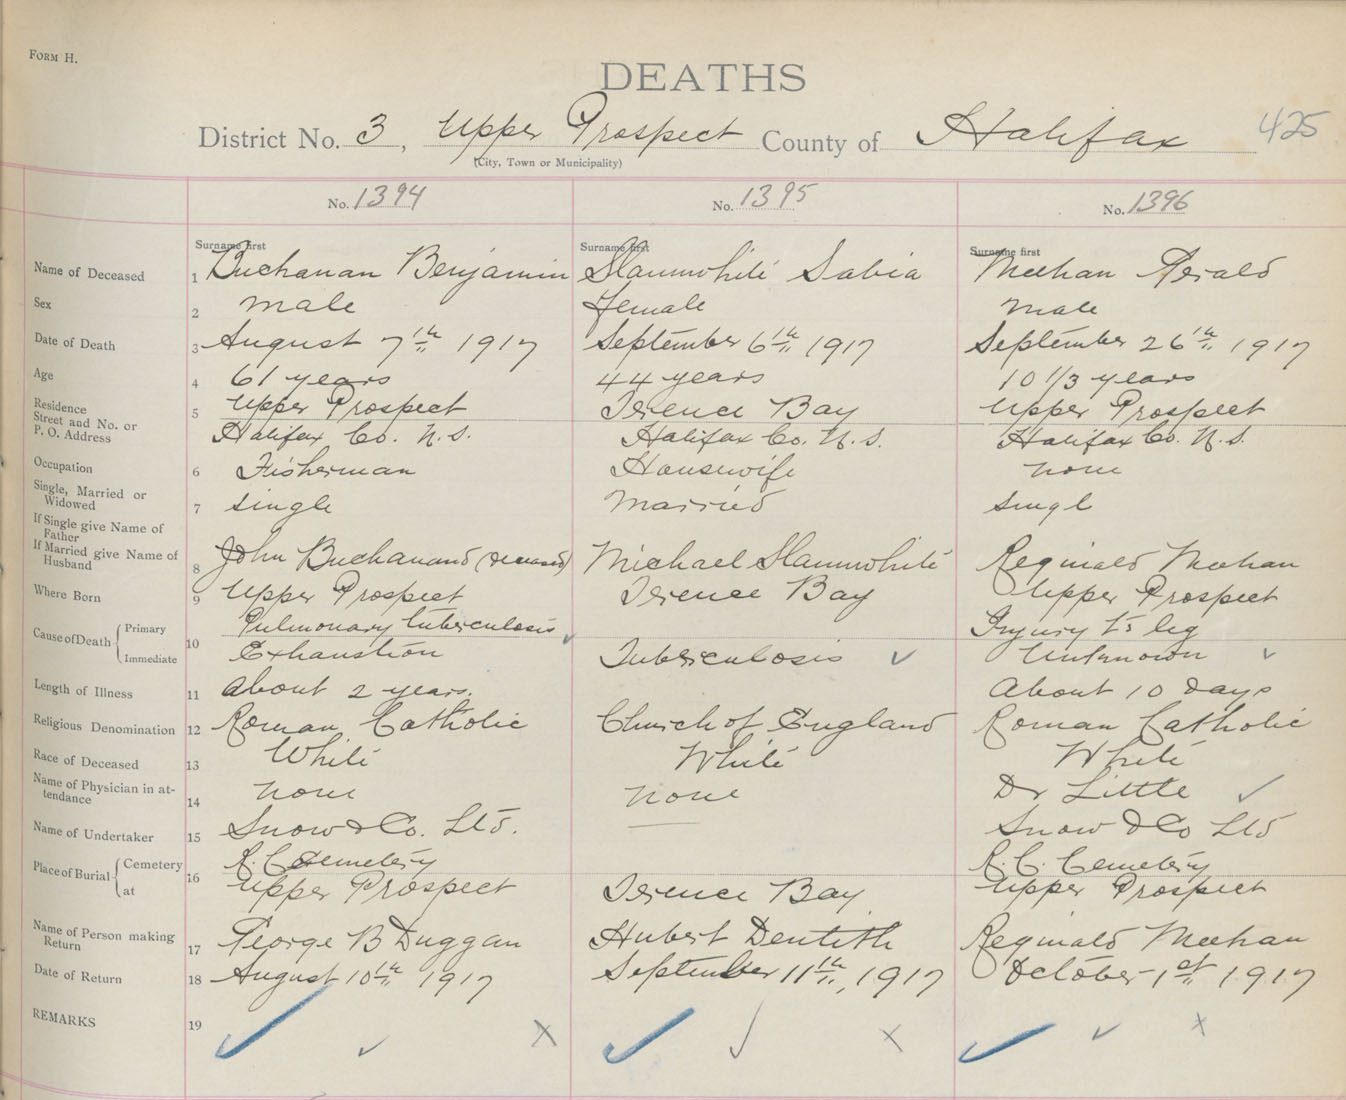 FORM H.
DEATHS
District No. 3, Upper Prospect County of Halifax 425
(City, Town or Municipality)
No. 1394 No. 1395 No. 1396
Surname first Surname first Surname first
Name of Deceased 1 Buchanan Benjamin Slaunwhite Sabia Meehan Gerald
Sex 2 male female male
Date of Death 3 August 7th 1917 September 6th 1917 September 26th 1917
Age 4 61 years 44 years 10 1/3 years
Residence Street and No. or P. O. Address 5 Upper Prospect Terence Bay Upper Prospect
Halifax Co. N.S. Halifax Co. N.S. Halifax Co. N.S.
Occupation 6 Fisherman Housewife none
Single, Married or Widowed 7 single Married singl
If Single give Name of Father
If Married give Name of Husband 8 John Buchanan (deceased) Michael Slaunwhite Reginald Meehan
Where Born 9 Upper Prospect Terence Bay Upper Prospect
Cause of Death Primary 10 Pulmonary tuberculosis Injury to leg
Immediate Exhaustion Tuberculosis Unknown
Length of Illness 11 about 2 years. About 10 days
Religious Denomination 12 Roman Catholic Church of England Roman Catholic
Race of Deceased 13 White White White
Name of Physician in attendance 14 none none Dr Little
Name of Undertaker 15 Snow & Co. Ltd. Snow & Co Ltd
Place of Burial Cemetery 16 R. C. Cemetery R. C. Cemetery
at Upper Prospect Terence Bay Upper Prospect
Name of Person making Return 17 George B Duggan Hubert Dentith Reginald Meehan
Date of Return 18 August 10th 1917 September 11th, 1917 October 1st 1917
REMARKS 19